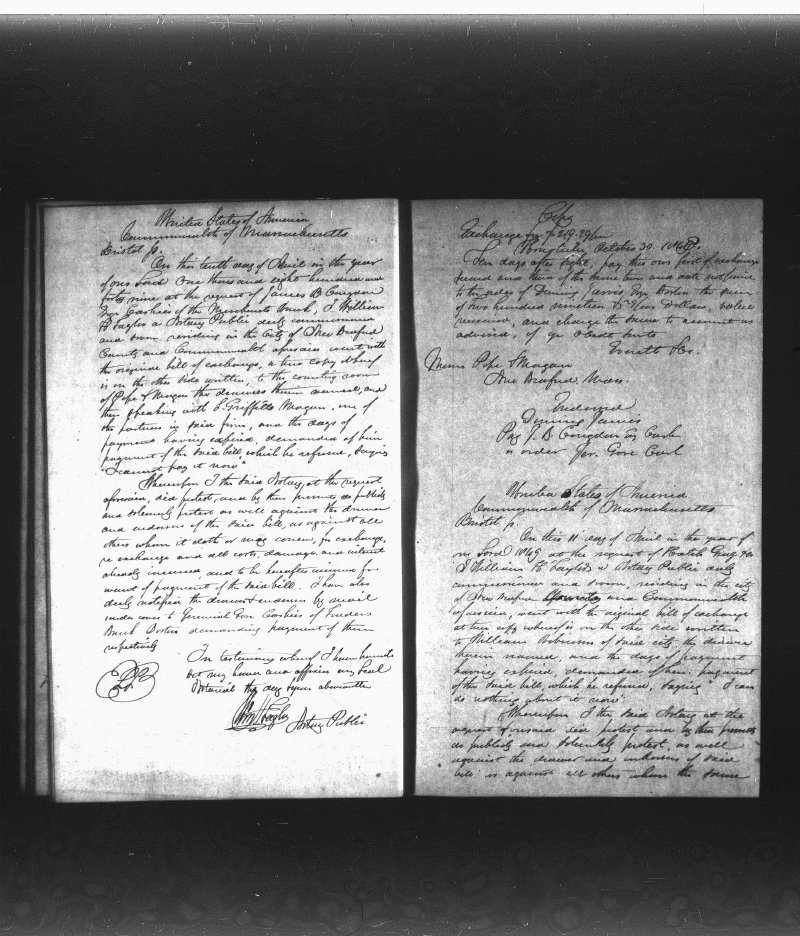 United States of America
Commonwealth of Massachusetts
Bristol ss.
On this tenth day of April in the year
of our Lord One thous and eight hundred and
forty nine at the request of James B Congdon
Esqr Cashier of the Merchants Bank, I William
H Taylor a Notary Public duly commission
and sworn, residing in the City of New Bedford
County and Commonwealth aforesaid went with
the original bill of exchange, a true copy whereof
is on the other side written, to the counting room
of Pope & Morgan the drawees therein named, and
then speaking with S. Griffitts Morgan, one of
the partners in said firm, and the days of
payment having expired, demanded of him
payment of the said bill which he refused, saying
"I cannot pay it now"
Wherefore I the said Notary, at the request
aforesaid, did protest, and by these presents do publicly
and solemnly protest as well against the drawer
and endorser of the said bill, as against all
others whom it doth or may concern, for exchange,
re exchange and all costs, damages and interest
already incurred and to be hereafter incurred for
want of payment of the said bill. I have also
duly notified the drawer & endorser by mail
under cover to Gore Cashier of
Bank Boston demanding payment of them
respectively
In testimony whereof I have hereunto
set my hand and affixed my Seal
Notarial the day upon
Wm H Taylor
Notary Public
Copy
Exchange for $219.
Honolulu, October 30. 1848.
Ten days after sight, pay this our first of exchange
second and third of the same tenor and date not paid
to the order of Jarvis Esq Boston the sum
of two hundred nineteen Dollars, value
received, and charge the same to account as
advised, of yr Obedt Servts
Everett & Co.
Messrs Pope & Morgan
New Bedford Mass.
Endorsed
Jarvis
Pay J. B. Congdon Esq Cash
or order Gore Cash
United States of America
Commonwealth of Massachusetts
Bristol ss.
On this 11 day of April in the year of
our Lord 1849 at the request of Hatch Gray & Co
I William H Taylor a Notary Public duly
commissioned and sworn, residing in the city
of New Bedford County and Commonwealth
aforesaid, went with the original bill of exchange
a true copy whereof is on the other side written
to William of said city the drawee
therein named, and the days of payment
having expired, demanded of him payment
of the said bill, which he refused, saying "I can
do nothing about it now"
Wherefore I the said Notary at the
request aforesaid did protest and by these presents
do publicly and solemnly protest, as well
against the drawer and endorsers of said
bill as against all others whom the same